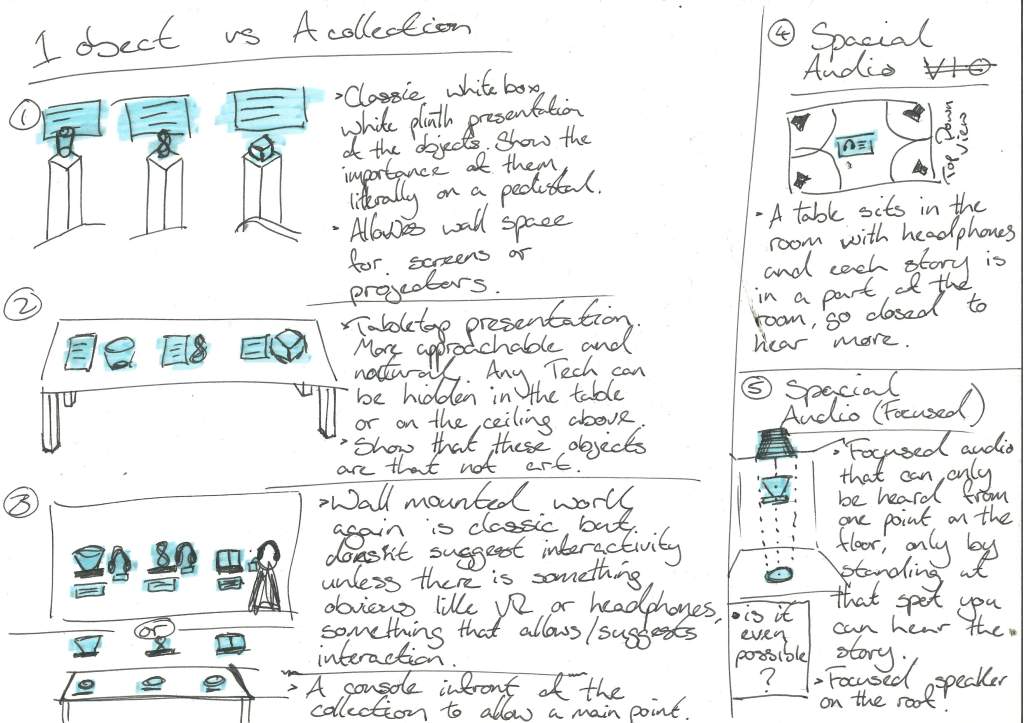 1 object vs A collection
①
> Classic white box,
white plinth presentation
of the objects. Show the
importance of them,
literally on a pedistal.
• Allows wall space
for screens or
projectors.
②
> Tabletop presentation.
More approachable and
natural. Any Tech can
be hidden in the table
or on the ceiling above.
• Show that these objects
are that not art.
3
> Wall mounted work
again is classic but
doesnt suggest interactivity
unless there is something
obvious like VR or headphones,
something that allows/suggests
interaction.
or
> A console infront of the
collection to allow a main point.
④ Spacial
Audio VIO
Top Down
View
• A table sits in the
room with headphones
and each story is
in a part of the
room, go closed to
hear more.
⑤ Spacial
Audio (Focused)
> Focused audio
that can only
be heard from
one point on the
floor, only by
standing at
that spot you
can hear the
story.
• is it
even
possible
?
> Focused speaker
on the roof.